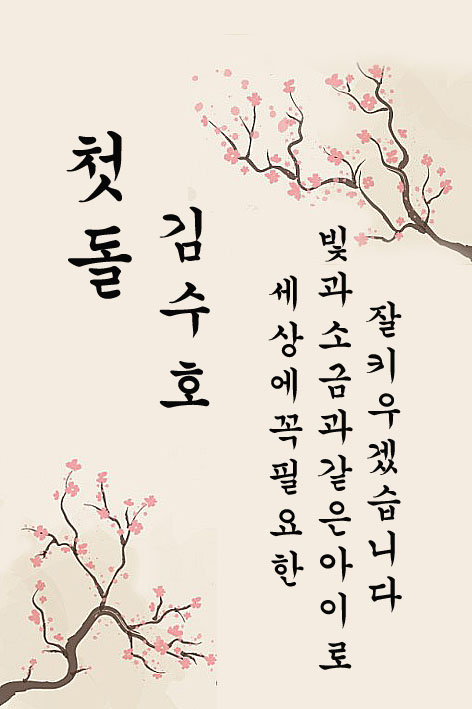 첫돌
김수호
세상에꼭필요한
빛과소금과같은아이로
잘키우겠습니다